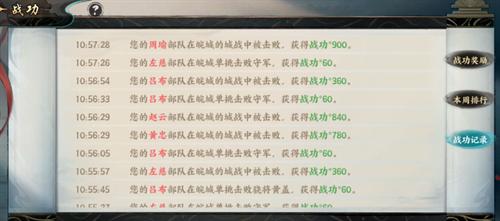 战功
?
10:57:28 您的周瑜部队在皖城的城战中被击败，获得战功*900。
10:57:26 您的左慈部队在皖城单挑击败守军，获得战功*60。
10:56:54 您的吕布部队在皖城的城战中被击败，获得战功*360。
10:56:33 您的吕布部队在皖城单挑击败守军，获得战功*60。
10:56:29 您的赵云部队在皖城的城战中被击败，获得战功*840。
10:56:29 您的黄忠部队在皖城的城战中被击败，获得战功*780。
10:56:05 您的吕布部队在皖城单挑击败守军，获得战功*60。
10:55:57 您的左慈部队在皖城的城战中被击败，获得战功*360。
10:55:45 您的吕布部队在皖城单挑击败骁将黄盖，获得战功*60。
战功奖励
本周排行
战功记录